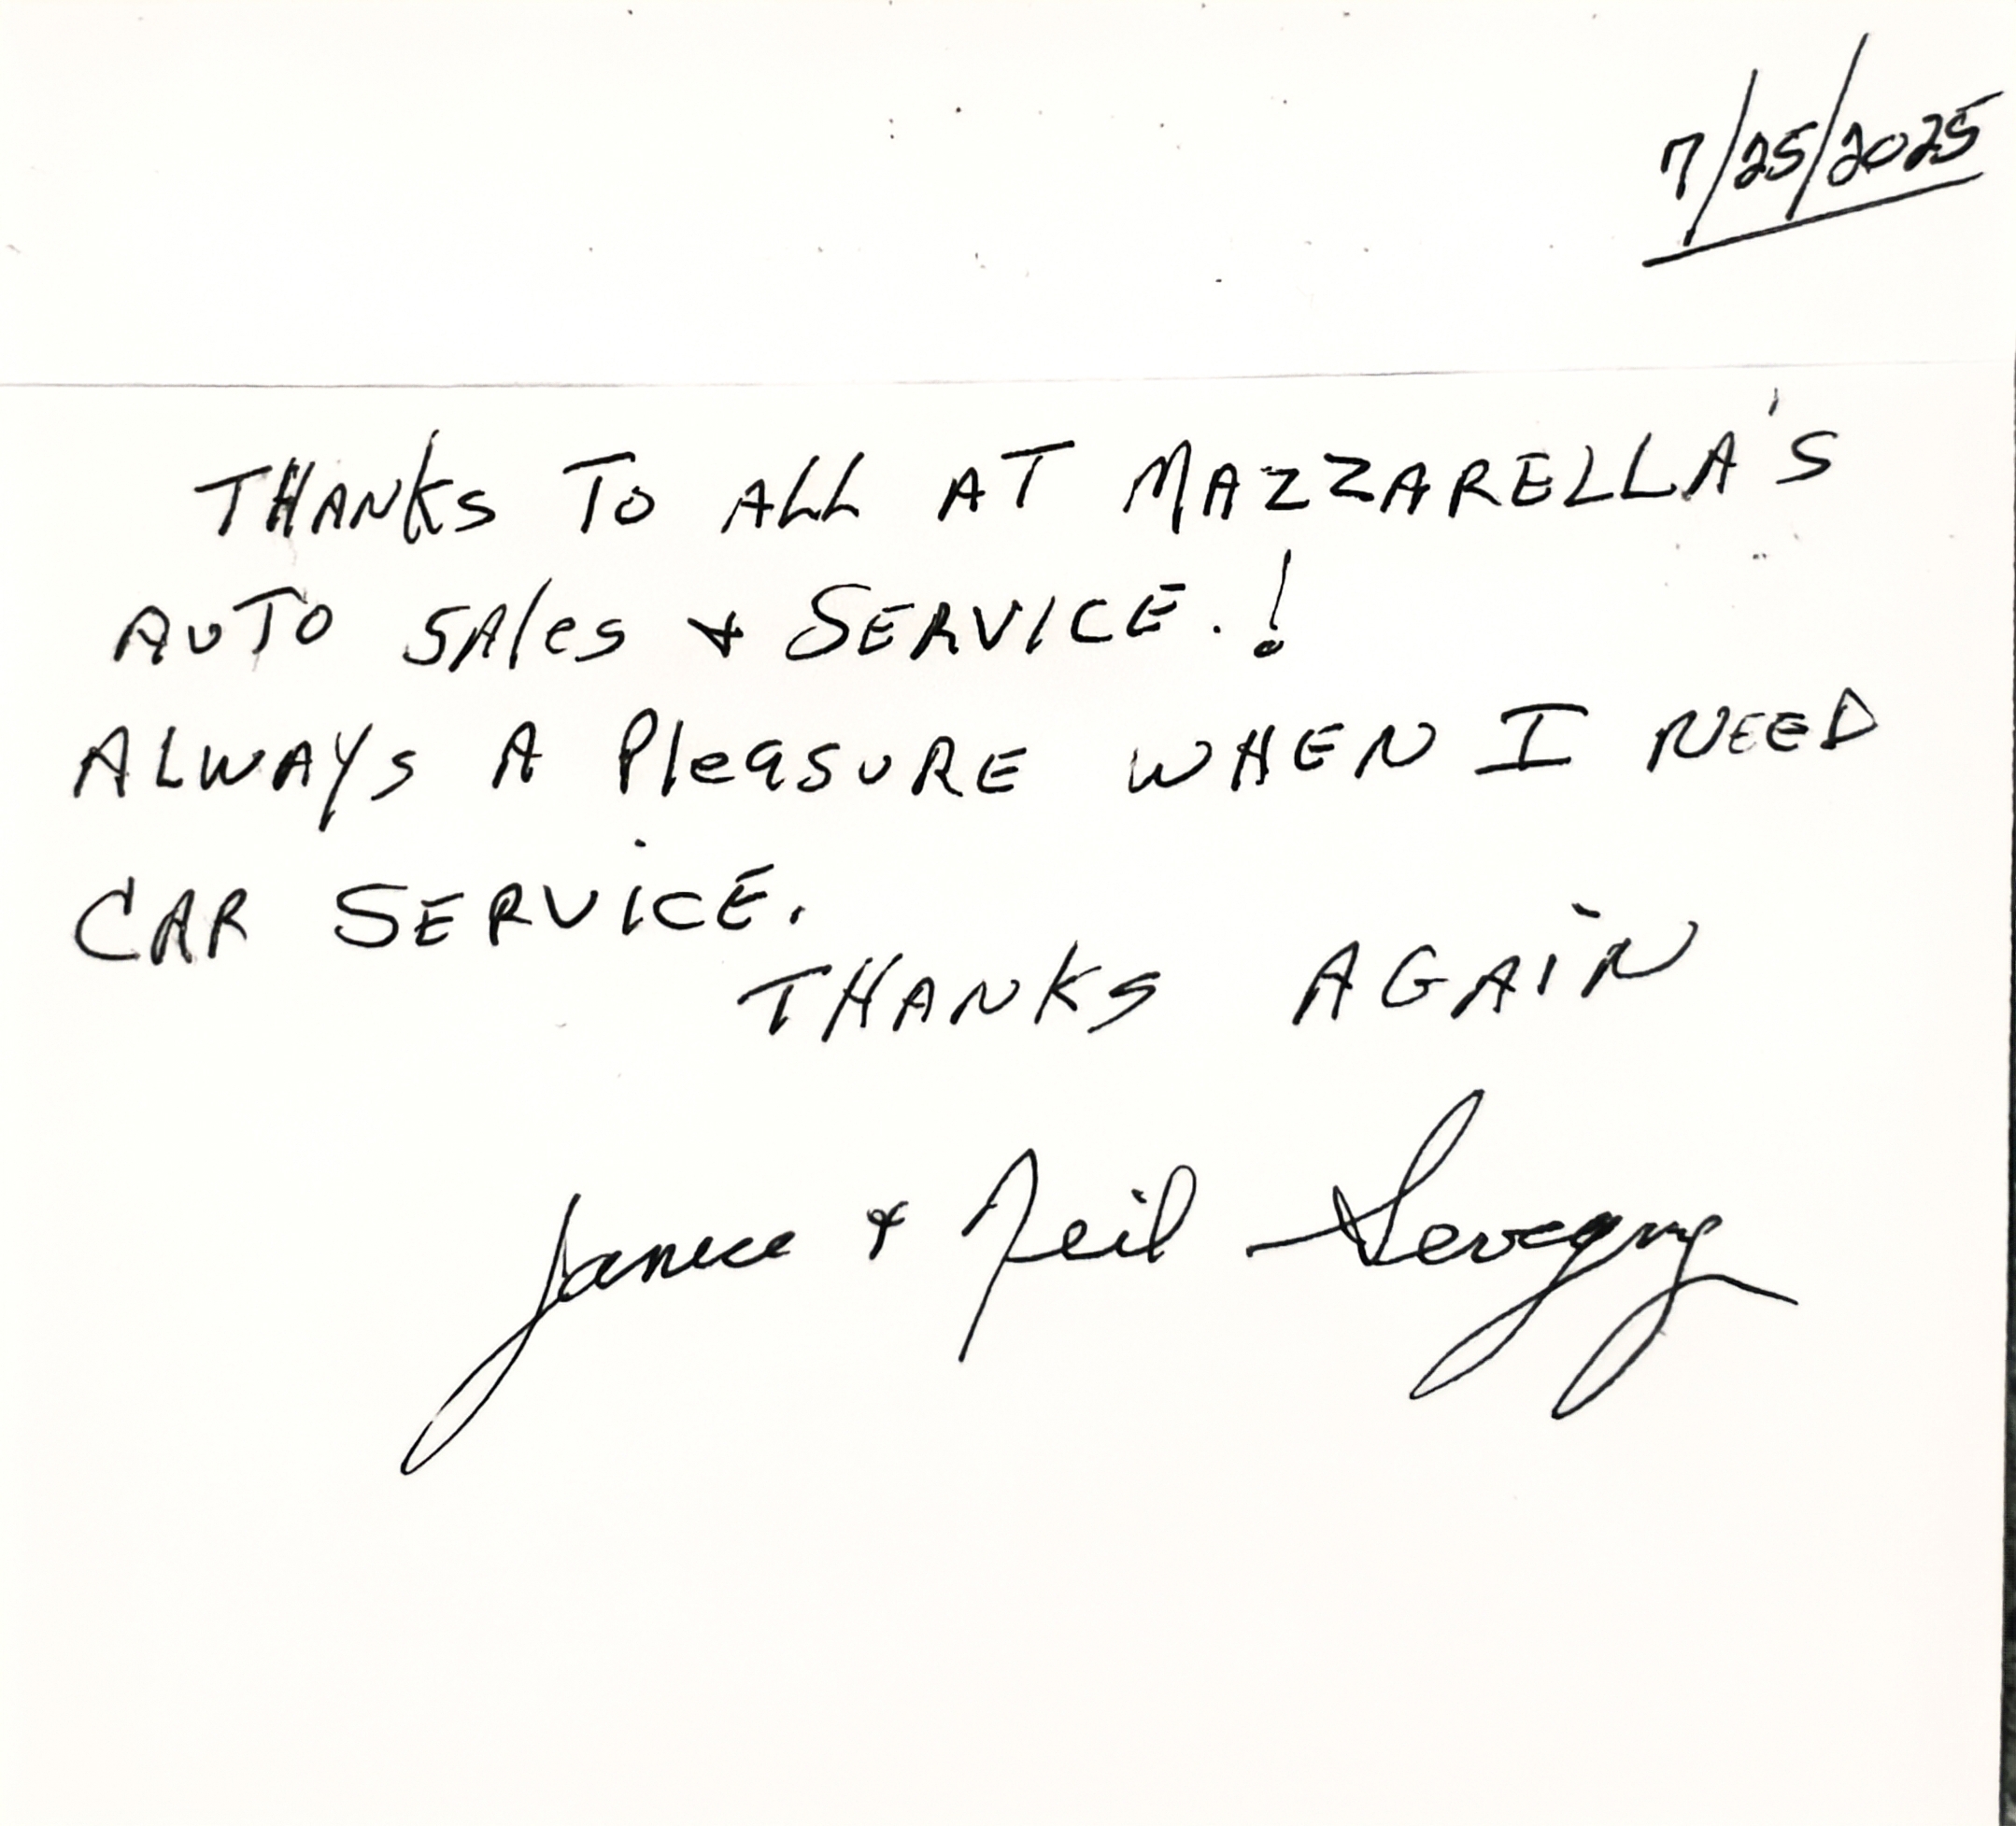 7/25/2025
THANKS TO ALL AT MAZZARELLA'S
AUTO SAles & SERVICE.!
ALWAYS A PleASURE WHEN I NEED
CAR SERViCE.
THANKS AGAiN
Janice & Neil